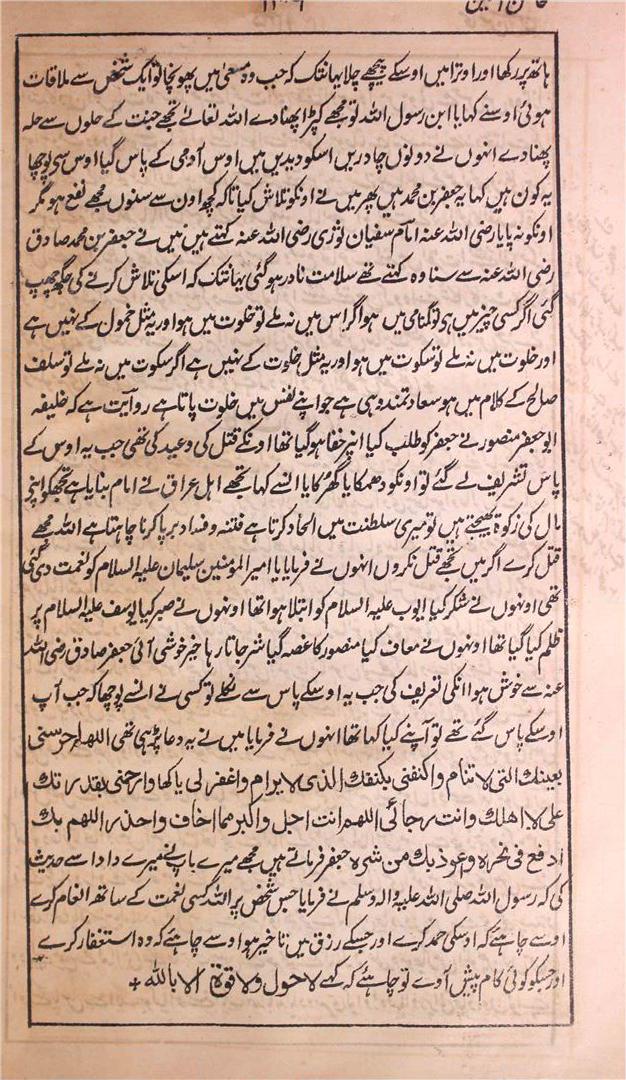 ہاتھ پر رکھا اور اوترا میں اوسکے پیچھے چلا یہانتک کہ جب وہ مسعیٰ میں پہونچا تو ایک شخص سے ملاقات
ہوئی اوسنے کہا یا ابن رسول اللہ تو مجھے کپڑا پھنا دے اللہ تعالےٰ تجھے جنت کے حلوں سے حلہ
پھنا دے انہوں نے دونوں چادریں اسکو دیدیں میں اوس آدمی کے پاس گیا اوس سی پوچھا
یہ کون ہیں کہا یہ جعفر بن محمد ہیں پھر میں نے اونکو تلاش کیا تاکہ کچھ اون سے سنوں مجھے نفع ہو مگر
اونکو نہ پایا رضی اللہ عنہ امام سفیان ثوری رضی اللہ عنہ کہتے ہیں میں نے جعفر بن محمد صادق
رضی اللہ عنہ سے سنا وہ کہتے تھے سلامت نادر ہو گئی یہانتک کہ اسکی تلاش کرنے کی جگہ چھپ
گئی اگر کسی چیز میں ہی تو گمنامی میں ہو اگر اس میں نہ ملے تو خلوت میں ہو اور یہ مثل خمول کے نہیں ہے
اور خلوت میں نہ ملے تو سکوت میں ہو اور یہ مثل خلوت کے نہیں ہے اگر سکوت میں نہ ملے تو سلف
صالح کے کلام میں ہو سعادتمند وہی ہے جو اپنے نفس میں خلوت پاتا ہے روآیت ہے کہ خلیفہ
ابو جعفر منصور نے جعفر کو طلب کیا اپنر خفا ہو گیا تھا اونکے قتل کی وعید کی تھی جب یہ اوس کے
پاس تشریف لے گئے تو اونکو دھمکایا گھرکایا انسے کہا تجھے اہل عراق نے امام بنایا ہے تجھکو اپنی
مال کی زکوۃ بھیجتے ہیں تو میری سلطنت میں الحاد کرتا ہے فتنہ و فساد برپا کرنا چاہتا ہے اللہ مجھے
قتل کرے اگر میں تجھے قتل نکروں انہوں نے فرمایا یا امیر المؤمنین سلیمان علیہ السلام کو نعمت دی گئی
تھی اونہوں نے شکر کیا ایوب علیہ السلام کو ابتلا ہوا تھا اونہوں نے صبر کیا یوسف علیہ السلام پر
ظلم کیا گیا تھا اونہوں نے معاف کیا منصور کا غصہ گیا شر جاتا رہا خیر خوشی آئی جعفر صادق رضی اللہ
عنہ سے خوش ہوا انکی تعریف کی جب یہ اوسکے پاس سے نکلے تو کسی نے انسے پوچھا کہ جب آپ
اوسکے پاس گئے تھے تو آپنے کیا کہا تھا انہوں نے فرمایا میں نے یہ دعا پڑہی تھی اللهم احرسنی
بعینك التی لا تنام واکنفنی بکنفك الذی لا یرام واغفر لی وارحمنی بقدرتك
علی لا اهلك وانت رجائی اللهم انت اجل واکبر مما اخاف واحذر اللهم بك
ادفع فی نحره واعوذ بك من شره جعفر فرماتے ہیں مجھے میرے باپ نے میرے دادا سے حدیث
کی کہ رسول اللہ صلی اللہ علیہ والہ وسلم نے فرمایا جس شخص پر اللہ کسی نعمت کے ساتھ انعام کرے
اوسے چاہئے کہ اوسکی حمد کرے اور جسکے رزق میں تاخیر ہو اوسے چاہئے کہ وہ استغفار کرے
اور جسکو کوئی کام پیش آوے تو چاہئے کہ کہے لا حول ولا قوة الا بالله +